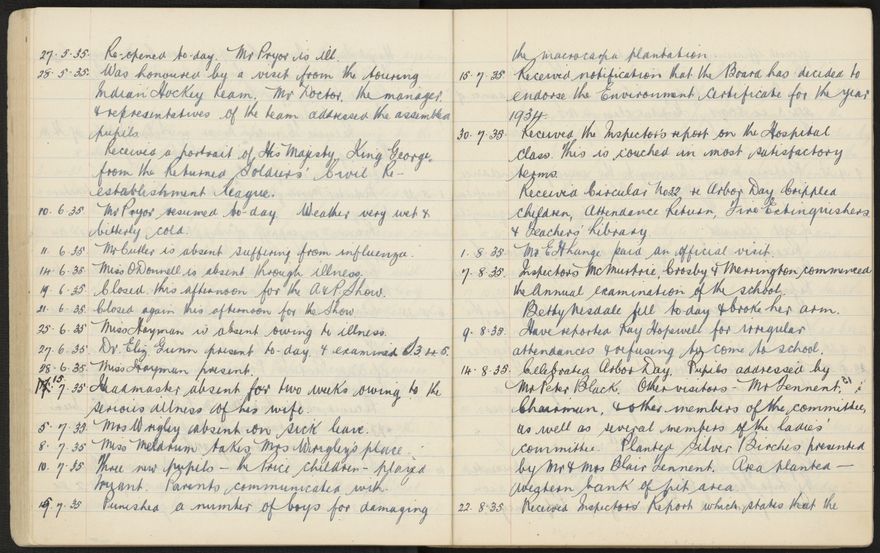 27.5.35. Re-opened to-day. Mr Pryor is ill.
28.5.35. Was honoured by a visit from the touring
Indian Hockey team. Mr Doctor, the manager,
& representatives of the team addressed the assembled
pupils
Received a portrait of His Majesty King George,
from the Returned Soldiers' Civil Re-
establishment league.
10.6.35. Mr Pryor resumed to-day. Weather very wet &
bitterly cold.
11.6.35 Mr Cutler is absent suffering from influenza.
14.6.35 Miss O'Donnell is absent through illness.
19.6.35 Closed this afternoon for the A & P. Show.
21.6.35 Closed again this afternoon for the Show
25.6.35 Miss Hayman is absent owing to illness.
27.6.35 Dr. Eliz. Gunn present to-day & examined S3 4 5.
28.6.35 Miss Hayman present.
7.35 Headmaster absent for two weeks owing to the
serious illness of his wife.
5.7.35 Mrs Wrigley absent on sick leave.
8.7.35 Miss Meldrum takes Mrs Wrigley's place.
10.7.35 Three new pupils - children - played
truant. Parents communicated with
15.7.35 Punished a number of boys for damaging
the macrocarpa plantation
15.7.35 Received notification that the Board has decided to
endorse the Environment Certificate for the year
1934.
30.7.35 Received the Inspector's report on the Hospital
class. This is couched in most satisfactory
terms.
Received Circular No 22 re Arbor Day Crippled
children, Attendance Return, Fire Extinguishers
& Teachers' Library.
1.8.35 Mr E H paid an official visit.
7.8.35 Inspectors McMurtrie, Crosby & Merrington commenced
the Annual examination of the school.
Betty Nesdale fell to-day & broke her arm.
9.8.35. Have reported Kay Hopwell for irregular
attendances & refusing to come to school.
14.8.35 Celebrated Arbor Day. Pupils addressed by
Mr Peter Black. Other visitors - Mr Tennent,
Chairman, & other members of the committee,
as well as several members of the ladies'
committee. Planted Silver Birches presented
by Mr & Mrs Blair Tennent. Area planted -
western bank of pit area
22.8.35 Received Inspectors' Report which states that the